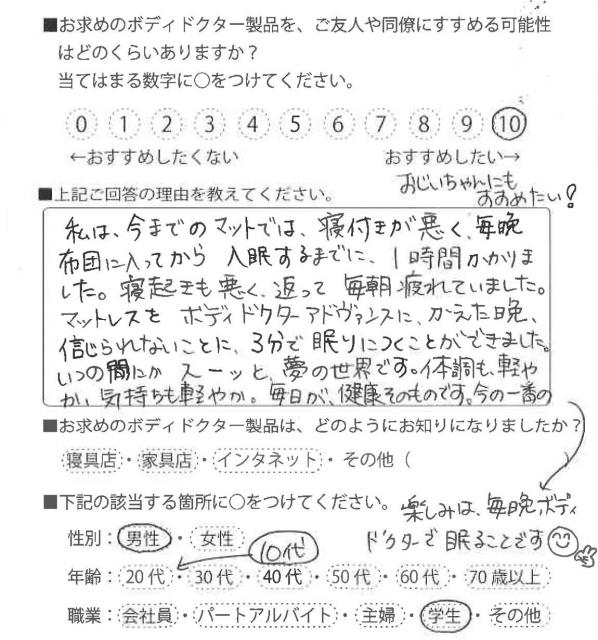 ■お求めのボディドクター製品を、ご友人や同僚にすすめる可能性
はどのくらいありますか？
当てはまる数字に○をつけてください。
0 1 2 3 4 5 6 7 8 9 10
←おすすめしたくない おすすめしたい→
おじいちゃんにも
すすめたい!
■上記ご回答の理由を教えてください。
私は、今までのマットでは、寝付きが悪く、毎晩
布団に入ってから 入眠するまでに、1時間かかりま
した。寝起きも悪く、返って 毎朝疲れていました。
マットレスを ボディドクターアドヴァンスに、かえた晩、
信じられないことに、3分で 眠りにつくことができました。
いつの間にか スーッと、夢の世界です。体調も、軽や
かい 気持ちも軽やか。毎日が、健康そのものです。今の一番の
■お求めのボディドクター製品は、どのようにお知りになりましたか？
寝具店・家具店・インタネット・その他（ ）
■下記の該当する箇所に○をつけてください。
楽しみは、毎晩ボディ
ドクターで 眠ることです
性別：男性・女性
10代
年齢：20代・30代・40代・50代・60代・70歳以上
職業：会社員・パートアルバイト・主婦・学生・その他